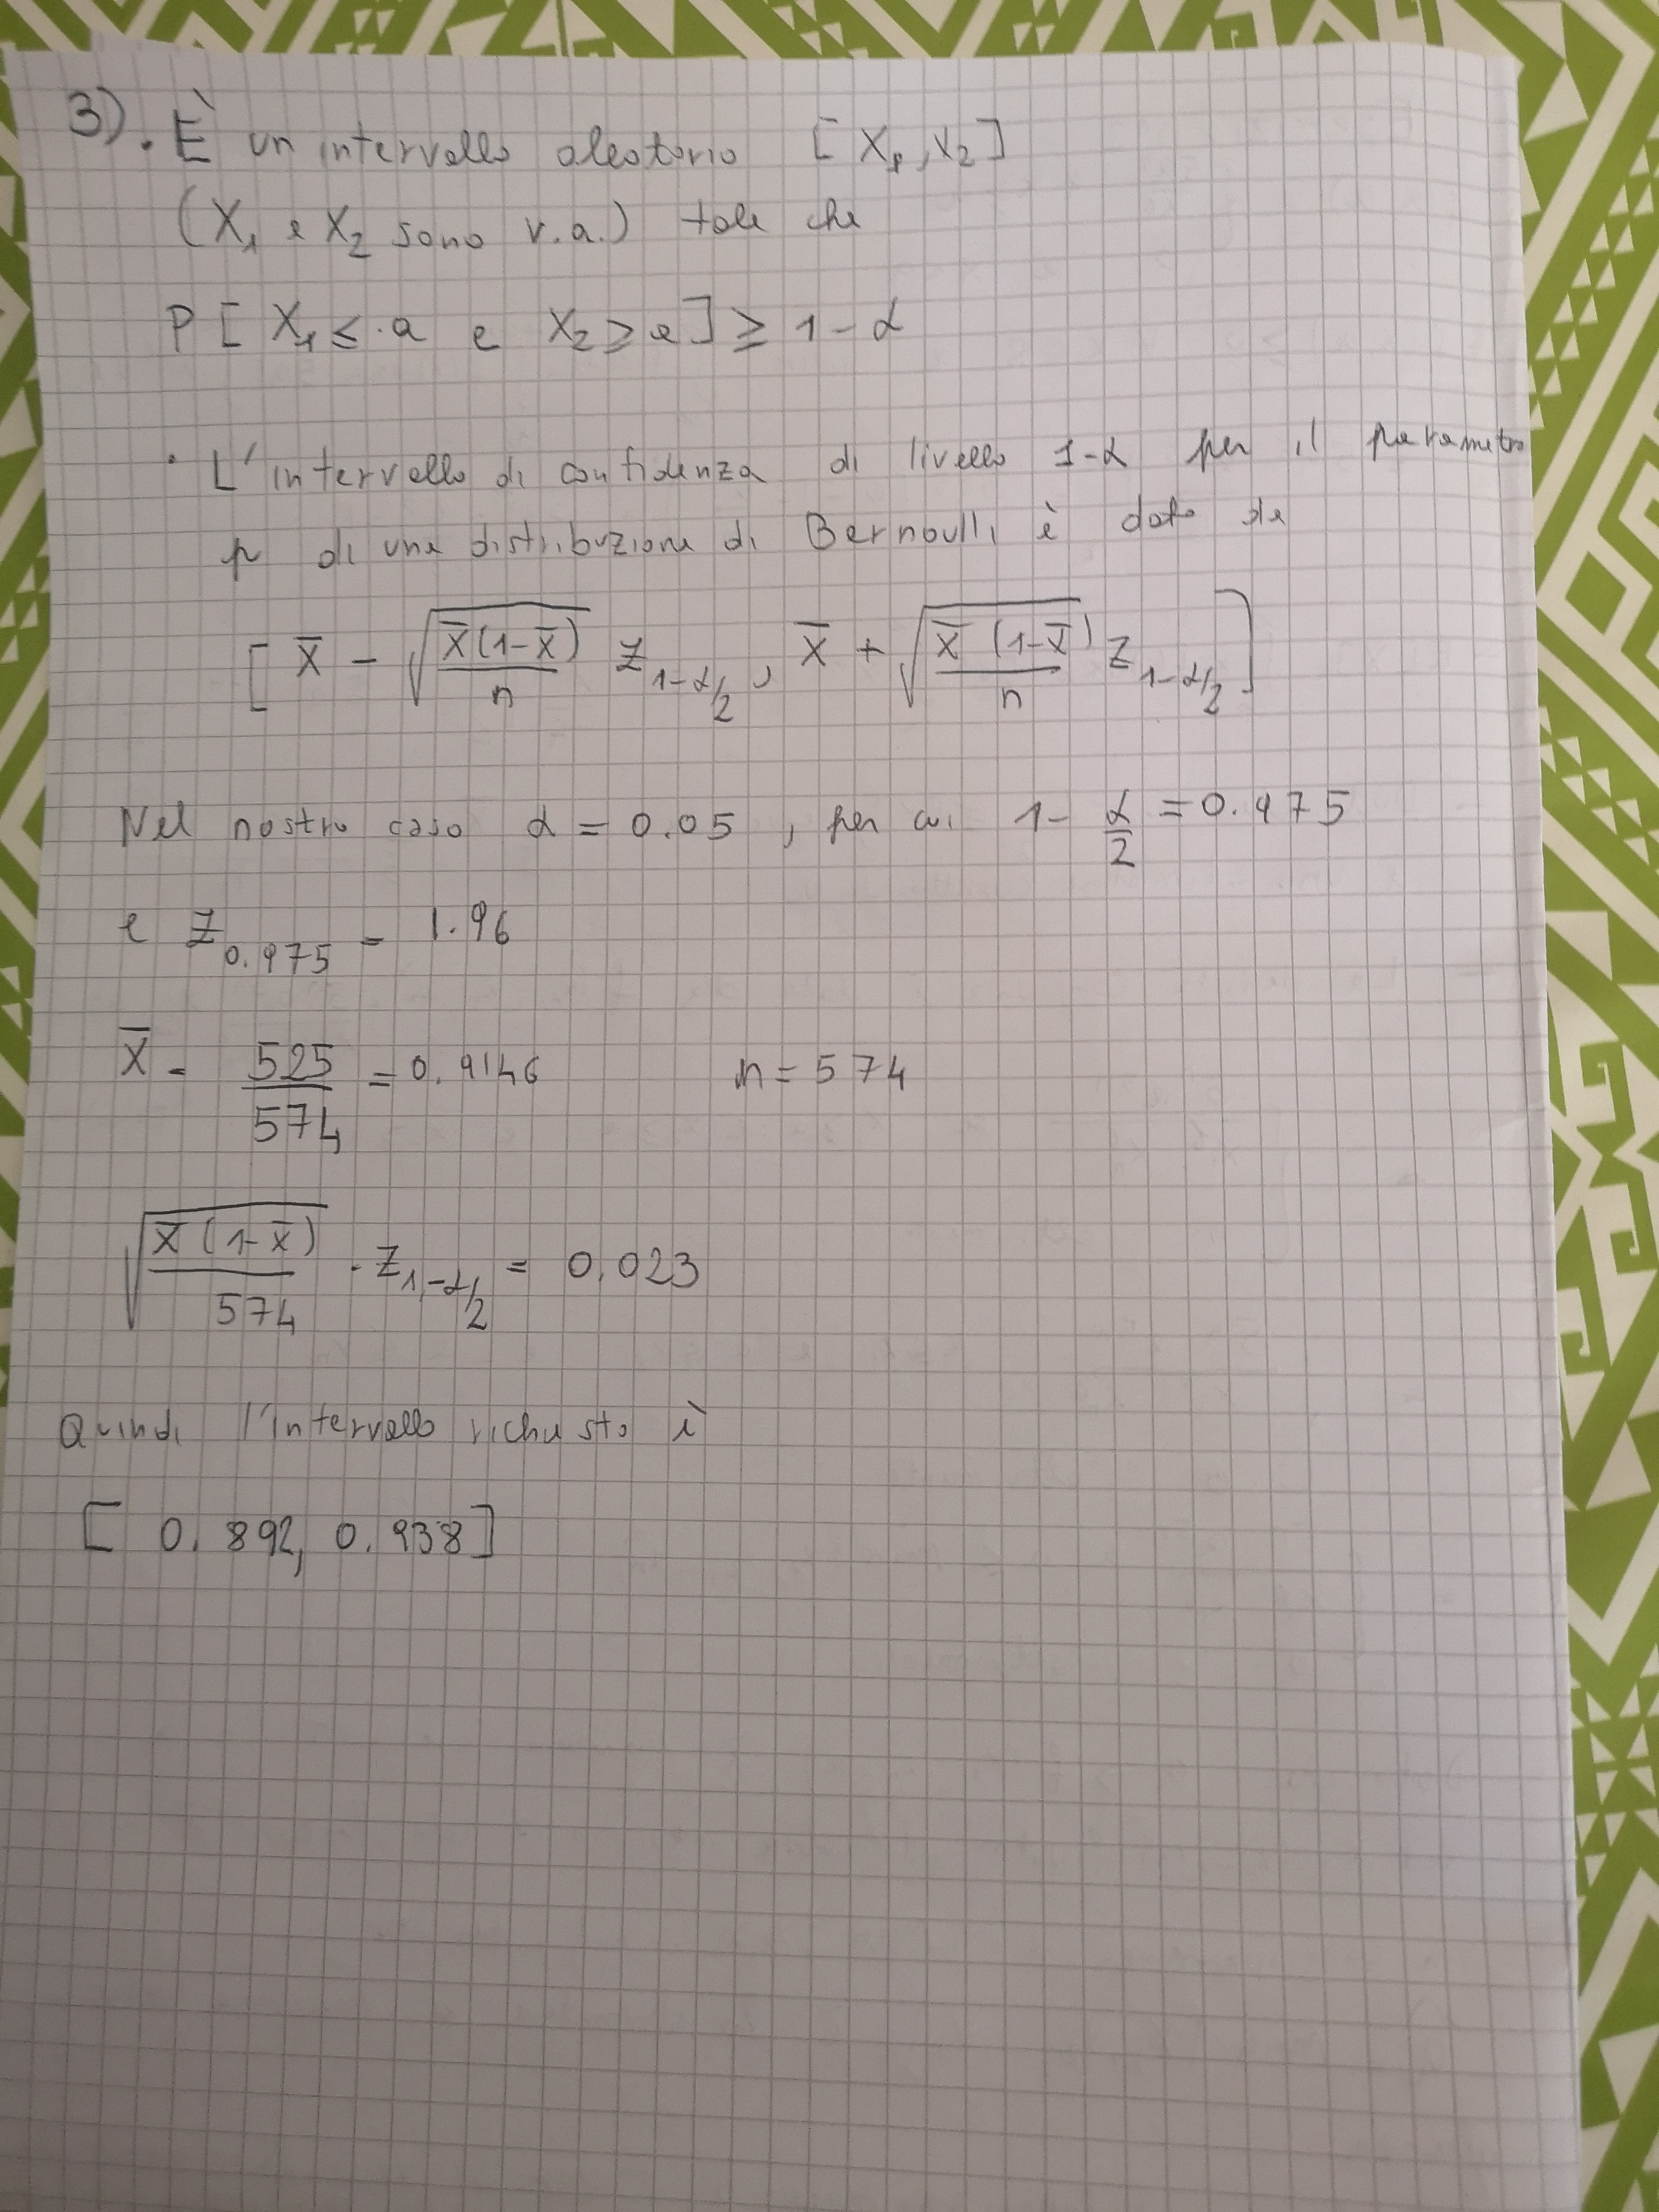 3). È un intervallo aleatorio [X₁, X₂]
(X₁ e X₂ sono v.a.) tale che
P[X₁ ≤ a e X₂ ≥ a] ≥ 1-α
· L'intervallo di confidenza di livello 1-α per il parametro
p di una distribuzione di Bernoulli è dato da
[X̅ - √(X̅(1-X̅)/n) Z_{1-α/2}, X̅ + √(X̅(1-X̅)/n) Z_{1-α/2}]
Nel nostro caso α = 0.05, per cui 1-α/2 = 0.975
e Z_{0.975} = 1.96
X̅ = 525/574 = 0.9146 n = 574
√(X̅(1-X̅)/574) · Z_{1-α/2} = 0.023
Quindi l'intervallo richiesto è
[0.892, 0.938]